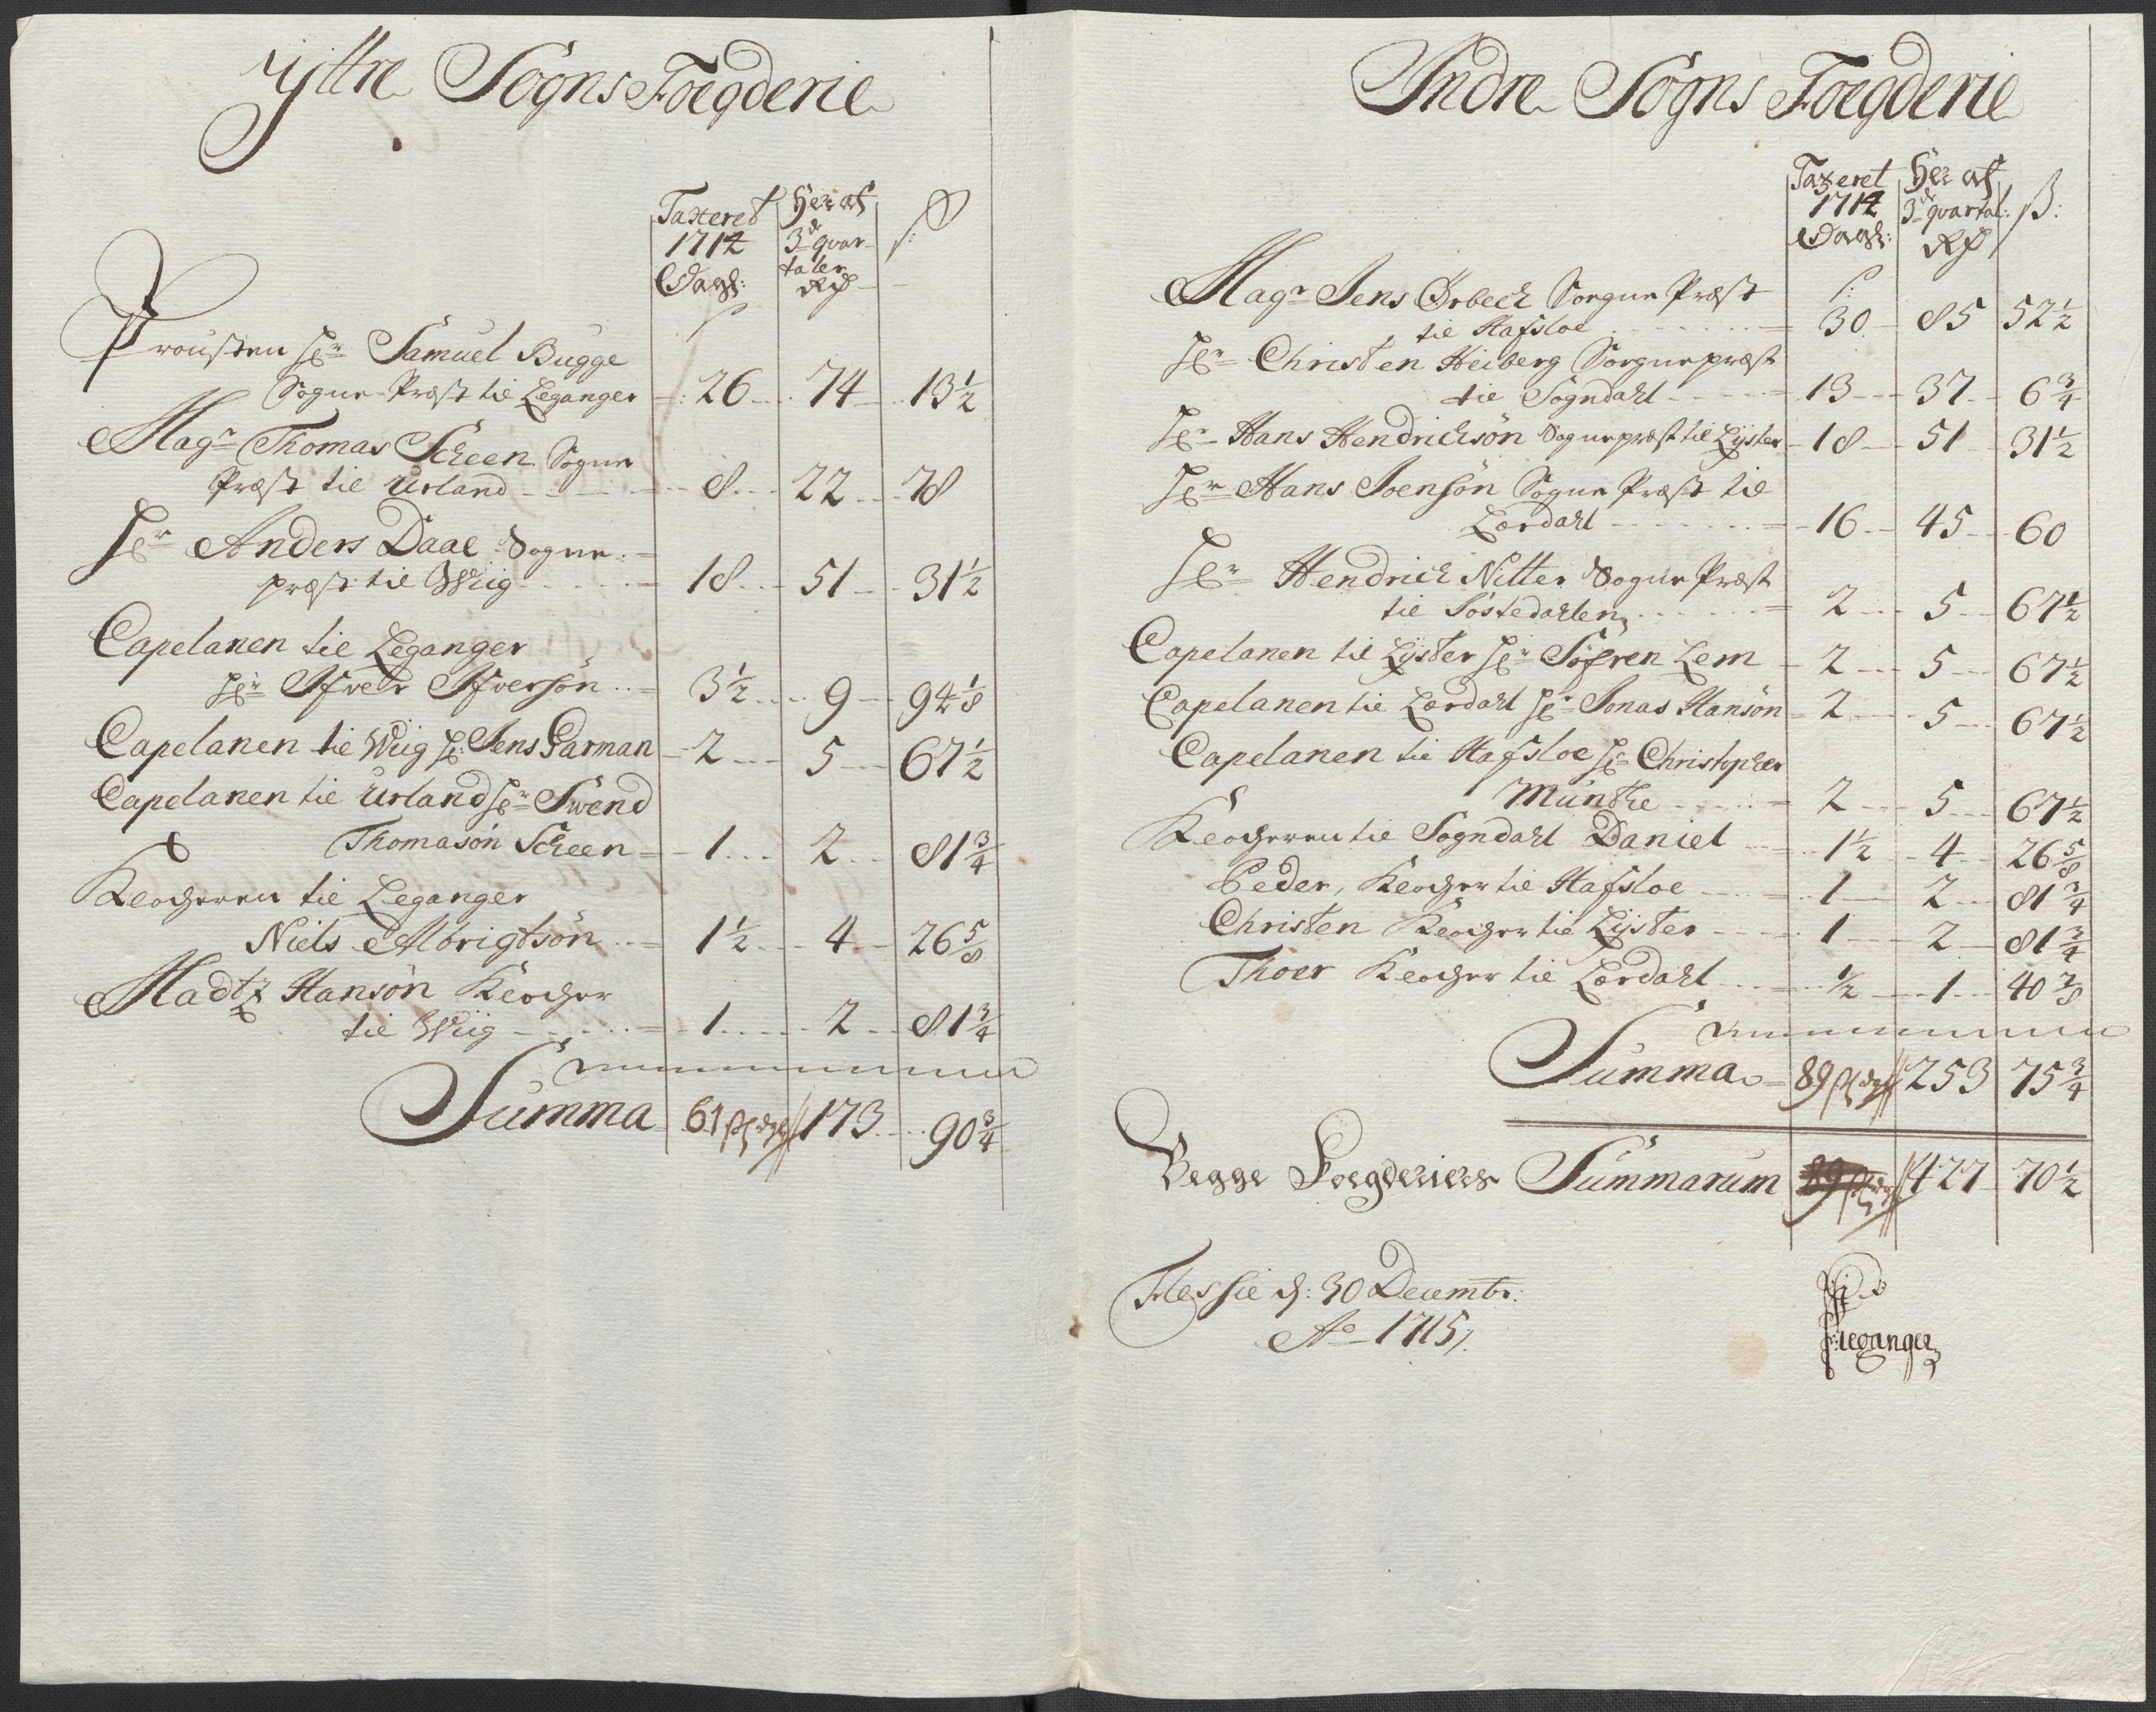 Yttre Sogns Foegderie
Taxteret | Her af | ß
1714 | 3de quar-
Dagl: | taler
Rd
Prousten Hr Samuel Bugge
Sogne-Præst til Leganger — 26 — 74 — 13½
Magr Thomas Scheen Sogne
Præst til Urland — 8 — 22 — 78
Hr Anders Daae Sogne-
præst til Wiig — 18 — 51 — 31½
Capelanen til Leganger
Hr Ifver Ifversøn — 3½ — 9 — 94⅛
Capelanen til Wiig Hr: Jens Garman — 2 — 5 — 67½
Capelanen til Urland Hr Swend
Thomasøn Scheen — 1 — 2 — 81¾
Klocheren til Leganger
Niels Albrigtsøn — 1½ — 4 — 26⅝
Madtz Hansøn Klocher
til Wiig — 1 — 2 — 81¾
Summa 61 173 90¾
Indre Sogns Foegderie
Taxeret | Her af
1714 | 3de quartal: | ß:
Dagl: | Rd
Magr Jens Ørbech Soegne Præst
til Hafsloe — 30 — 85 — 52½
Hr Christen Heiberg Sorgnepræst
til Sogndahl — 13 — 37 — 6¾
Hr Hans Hendrichsøn Sognepræst til Lyster — 18 — 51 — 31½
Hr Hans Joensøn Sogne Præst til
Lærdahl — 16 — 45 — 60
Hr Hendrich Nitter Sogne Præst
til Jostedahlen — 2 — 5 — 67½
Capelanen til Lyster Hr Søfren Lem — 2 — 5 — 67½
Capelanen til Lærdahl Hr Jonas Hansøn — 2 — 5 — 67½
Capelanen til Hafsloe Hr Christopher
Munthe — 2 — 5 — 67½
Klocheren til Sogndahl Daniel — 1½ — 4 — 26⅝
Peder, Klocher til Hafsloe — 1 — 2 — 81¾
Christen Klocher til Lyster — 1 — 2 — 81¾
Thoer Klocher til Lærdahl — ½ — 1 — 40⅞
Summa 89 253 75¾
Begge Foegderiers Summarum 89 427 70½
Flessie d: 30 Decembr:
Ao 1715/.